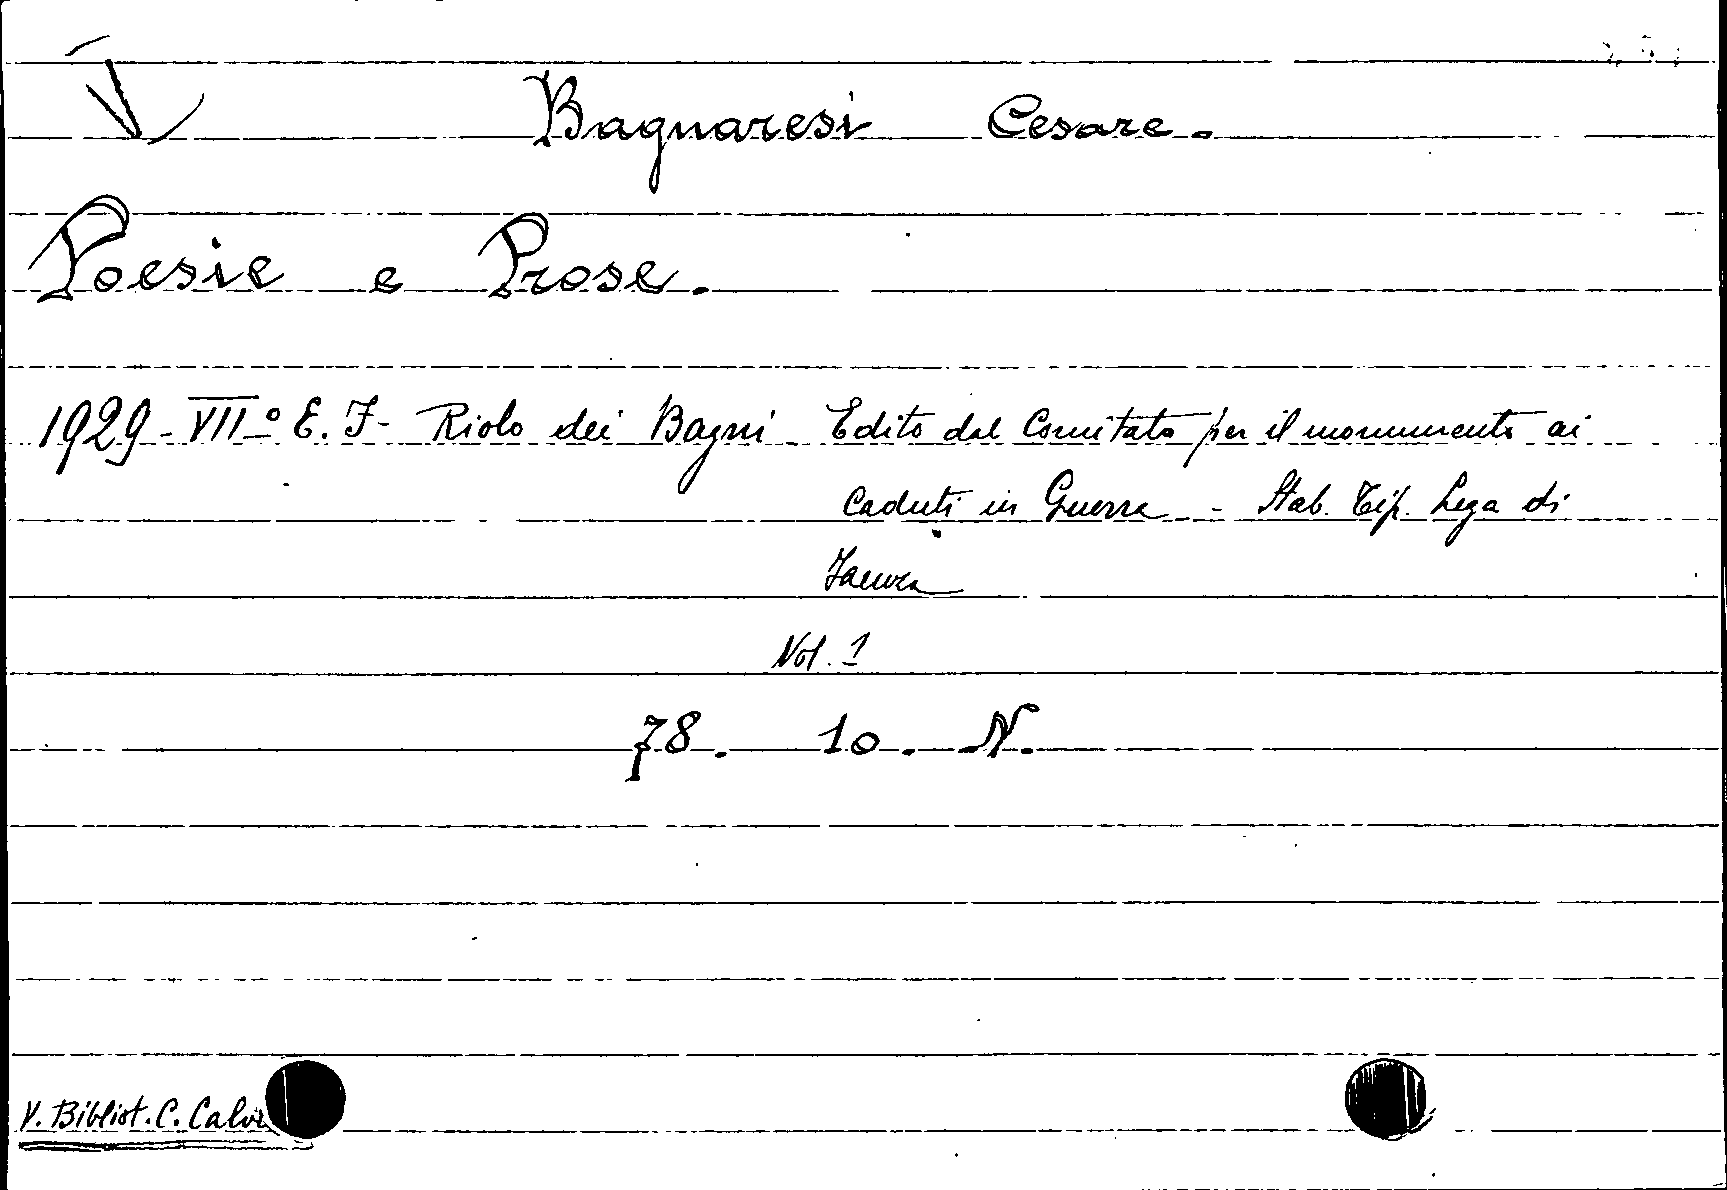 Bagnaresi Cesare.
Poesie e Prose.
1929 - VII° E. F. - Riolo dei Bagni - Edito dal Comitato per il monumento ai
Caduti in Guerra - Stab. Tip. Lega di
Faenza
Vol. 1
78. 10. N.
V. Bibliot. C. Calvi